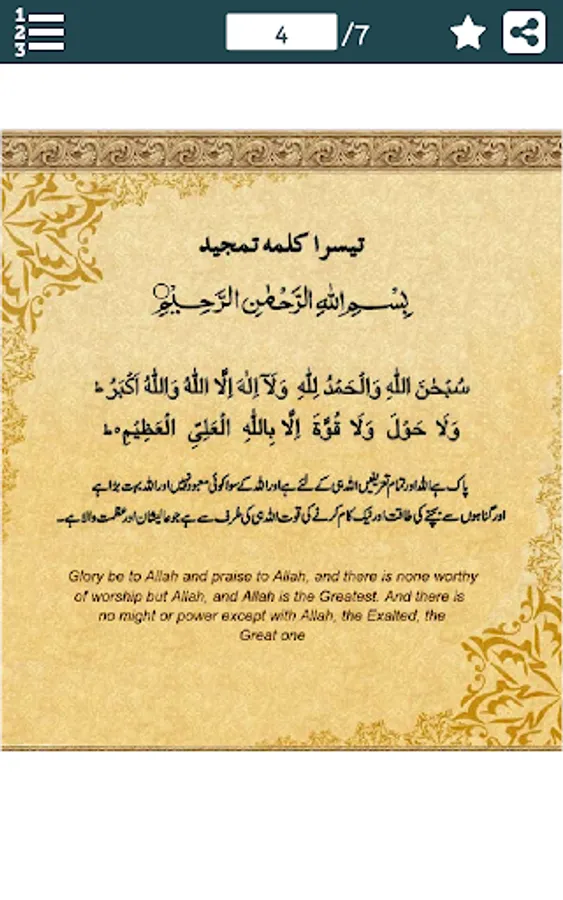 1
2
3
4 /7
تیسرا کلمہ تمجید
بِسْمِ اللهِ الرَّحْمٰنِ الرَّحِيْمِ
سُبْحٰنَ اللهِ وَالْحَمْدُ لِلّٰهِ وَلَآ اِلٰهَ اِلَّا اللهُ وَاللهُ اَكْبَرُ ؕ
وَلَا حَوْلَ وَلَا قُوَّةَ اِلَّا بِاللهِ الْعَلِيِّ الْعَظِيْمِ ؕ
پاک ہے اللہ اور تمام تعریفیں اللہ ہی کے لئے ہے اور اللہ کے سوا کوئی معبود نہیں اور اللہ بہت بڑا ہے
اور گناہوں سے بچنے کی طاقت اور نیک کام کرنے کی قوت اللہ ہی کی طرف سے ہے جو عالیشان اور عظمت والا ہے۔
Glory be to Allah and praise to Allah, and there is none worthy
of worship but Allah, and Allah is the Greatest. And there is
no might or power except with Allah, the Exalted, the
Great one